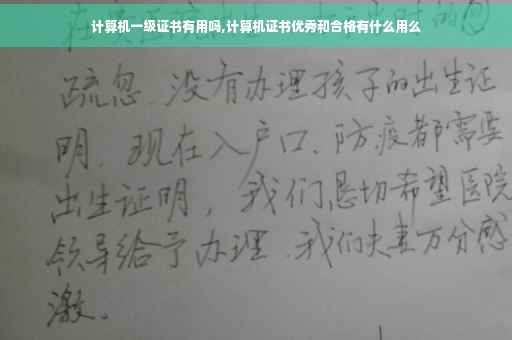 计算机一级证书有用吗,计算机证书优秀和合格有什么用么
疏忽、没有办理孩子的出生证
明、现在入户口、防疫都需要
出生证明，我们恳切希望医院
领导给予办理、我们夫妻万分感
激。